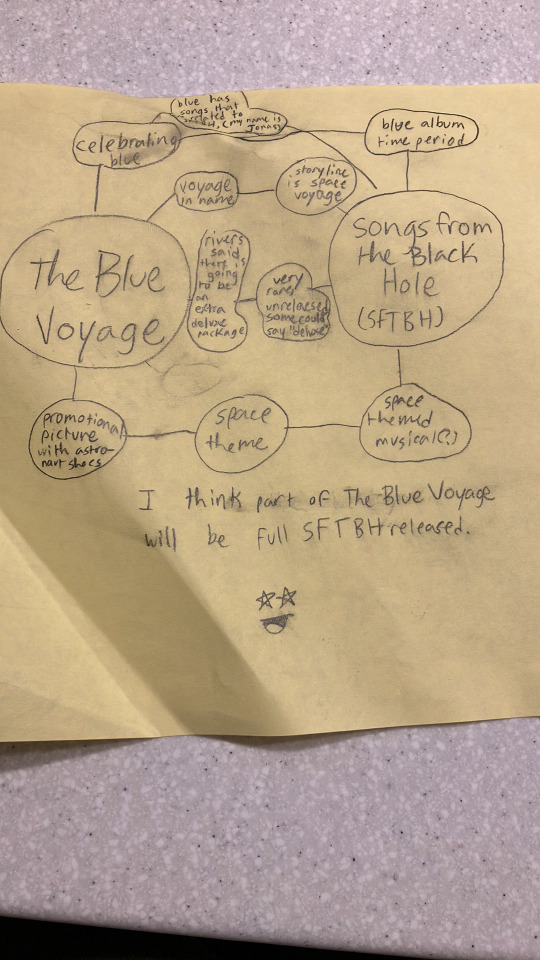 blue has
songs that
to
(my name is
Jonas)
celebrating
blue
blue album
time period
voyage
in name
story line
is space
voyage
The Blue
Voyage
rivers
said
there is
going
to be
an
extra
deluxe
package
very
rare,
unreleased
some could
say "deluxe"
Songs from
the Black
Hole
(SFTBH)
promotional
picture
with astro-
naut shoes
space
theme
space
themed
musical(?)
I think part of The Blue Voyage
will be full SFTBH released.